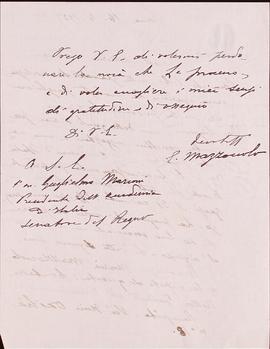 Prego V. E. di volermi perdo
nare la noia che Le procuro,
e di voler accogliere i miei sensi
di gratitudine e di ossequio
Di V. E.
devotmo
E. Mazzoccolo
A S. E.
Guglielmo Marconi
Presidente Dell'Accademia
D'Italia
Senatore del Regno